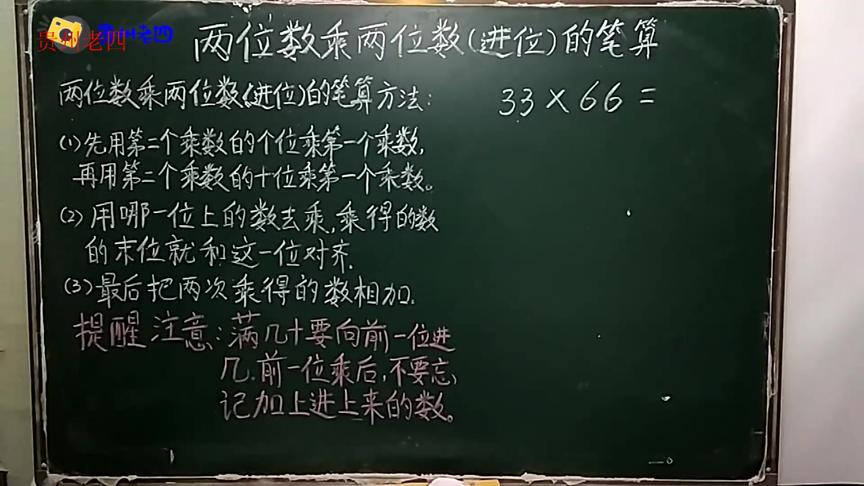 贵州老四
贵州老四
两位数乘两位数(进位)的笔算
两位数乘两位数(进位)的笔算方法:
33×66=
(1)先用第二个乘数的个位乘第一个乘数,
再用第二个乘数的十位乘第一个乘数。
(2)用哪一位上的数去乘,乘得的数
的末位就和这一位对齐.
(3)最后把两次乘得的数相加.
提醒注意:满几十要向前一位进
几.前一位乘后,不要忘
记加上进上来的数。